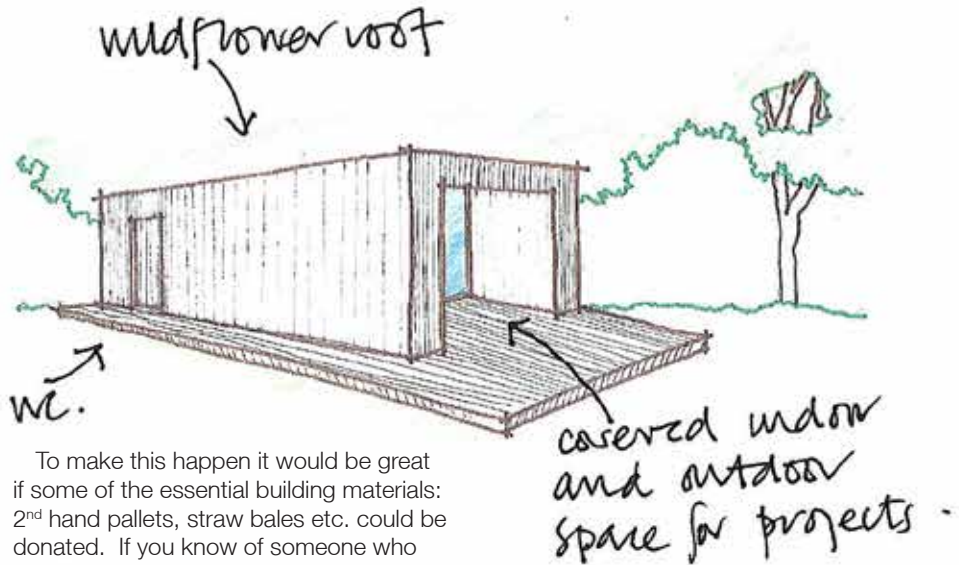 wildflower roof
wc.
covered indoor
and outdoor
space for projects.
To make this happen it would be great
if some of the essential building materials:
2nd hand pallets, straw bales etc. could be
donated.  If you know of someone who